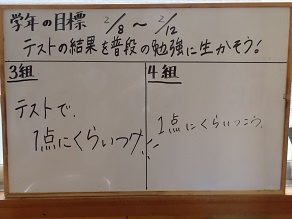 学年の目標 2/8 ～ 2/12
テストの結果を普段の勉強に生かそう!
3組
テストで、
1点にくらいつけ
4組
1点にくらいつこう。